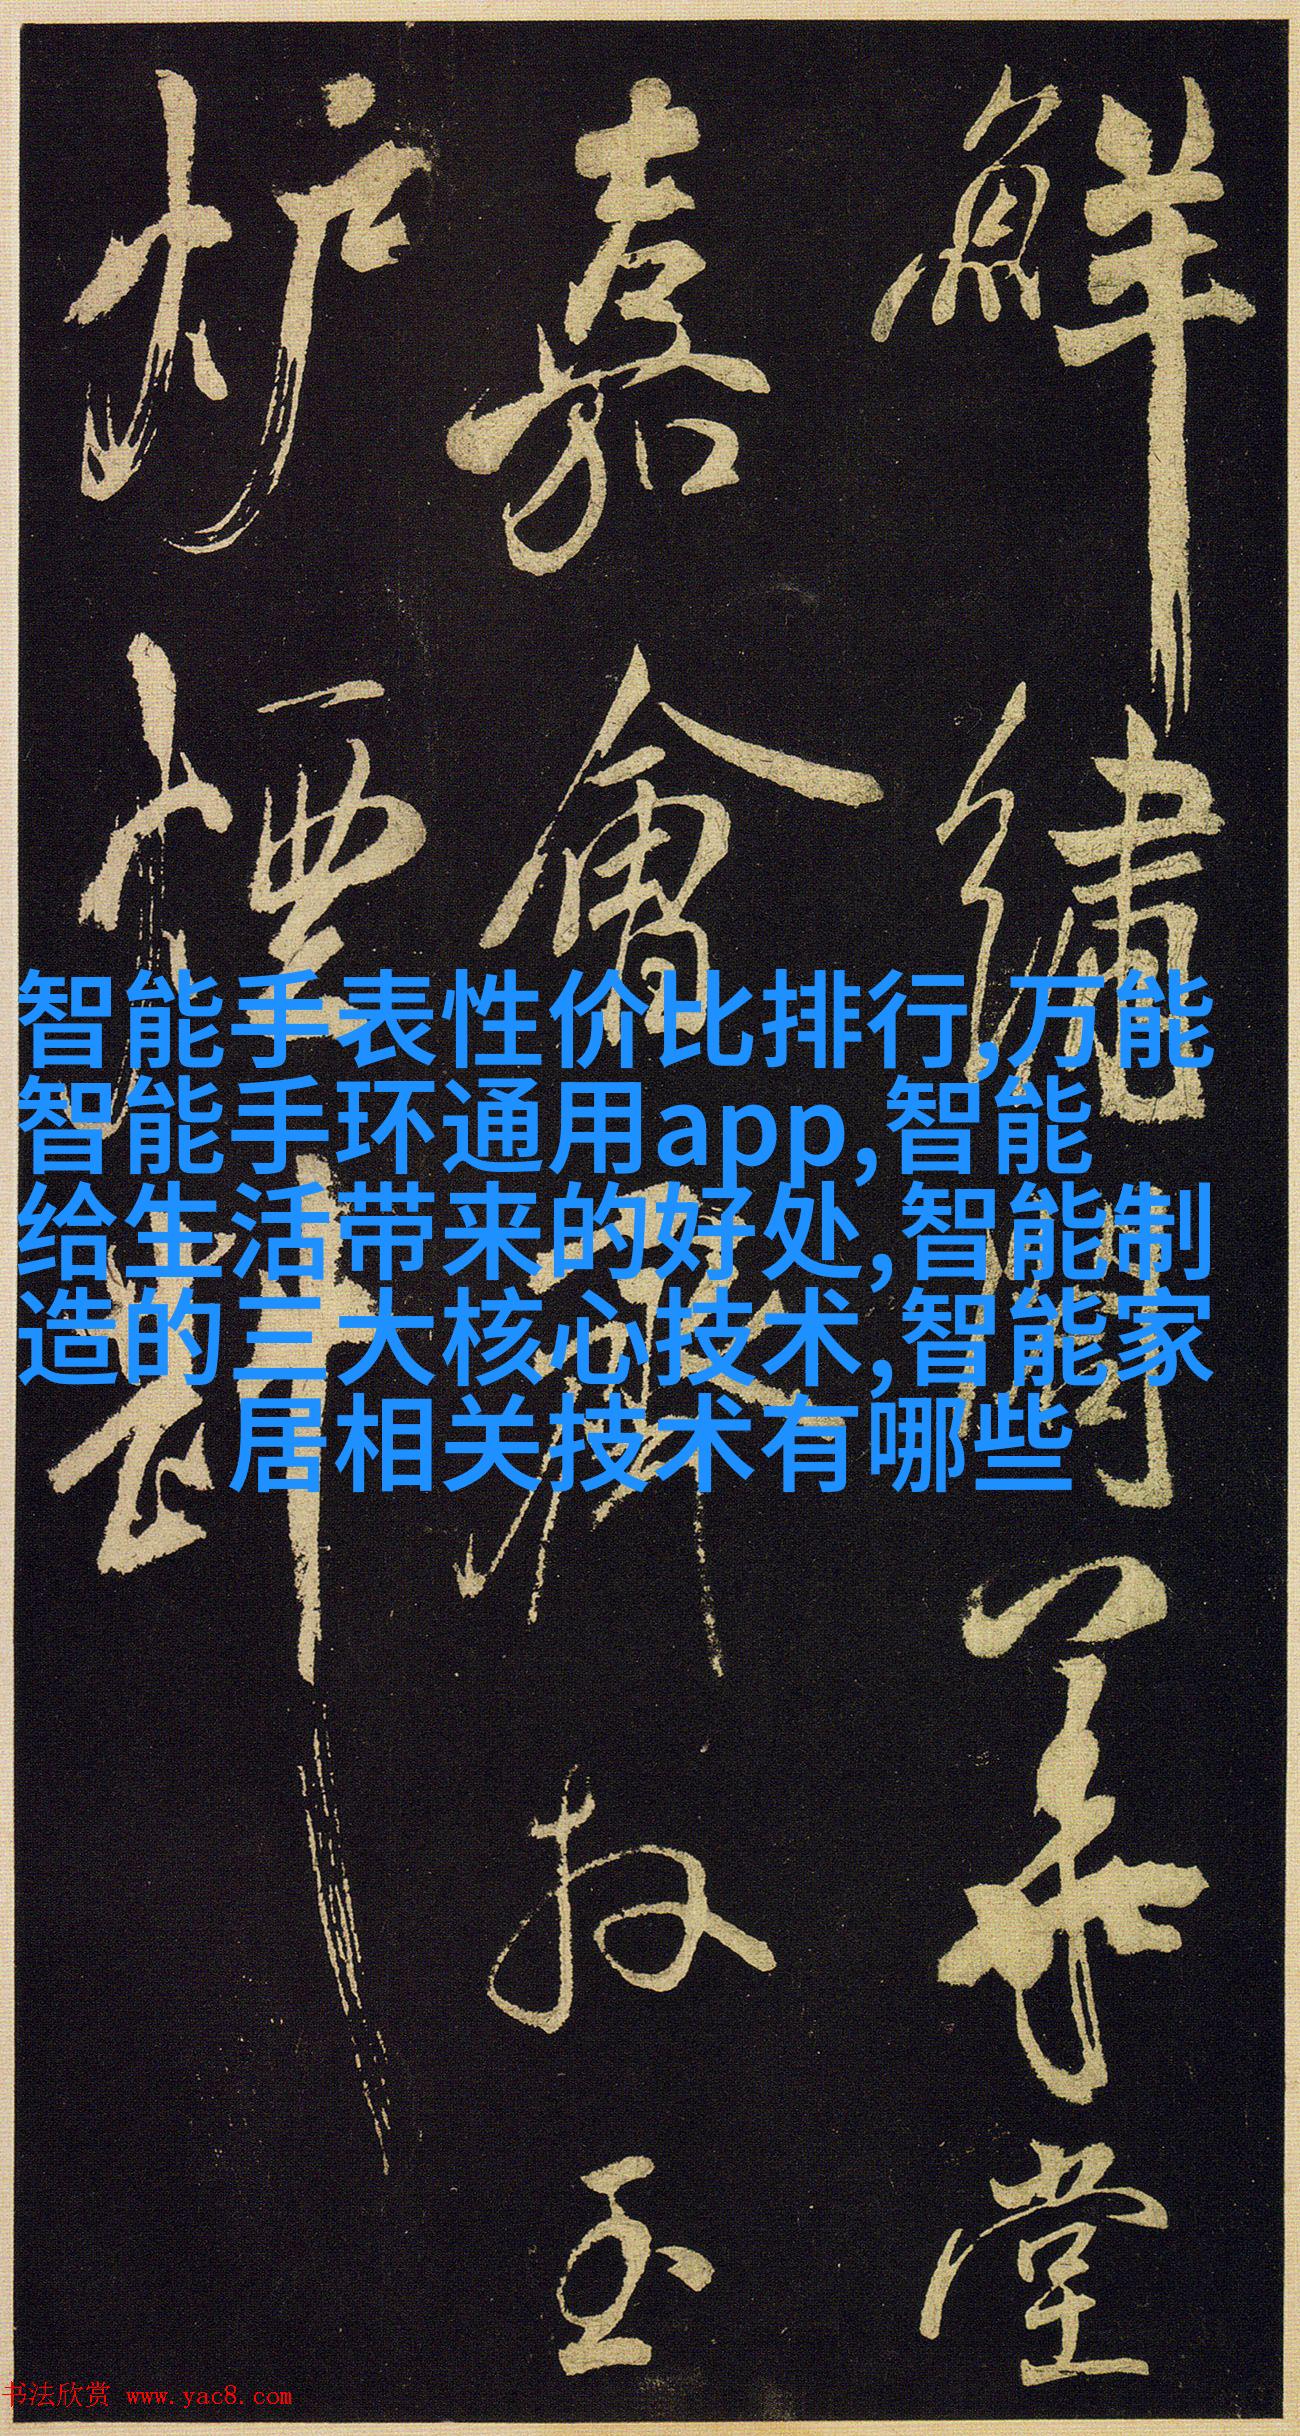 鮮繡閣華堂
嘉會罷放玉
炉煙斷
智能手表性价比排行,万能
智能手环通用app,智能
给生活带来的好处,智能制
造的三大核心技术,智能家
居相关技术有哪些
书法欣赏 www.yac8.com